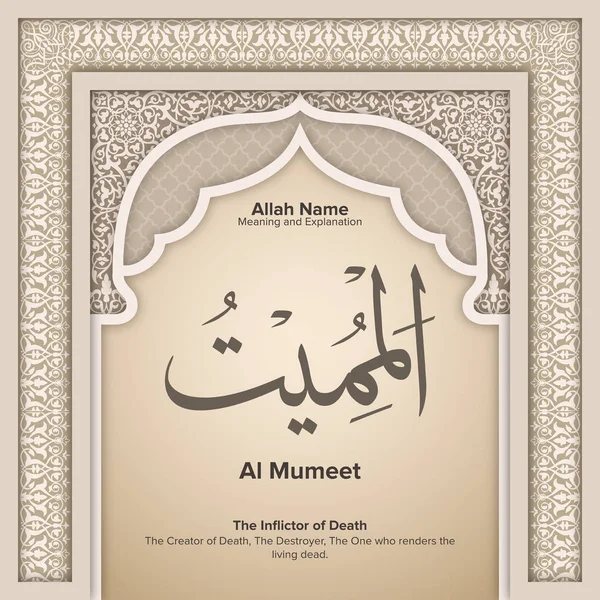 Allah Name
Meaning and Explanation
المُمِيْتُ
Al Mumeet
The Inflictor of Death
The Creator of Death, The Destroyer, The One who renders the
living dead.